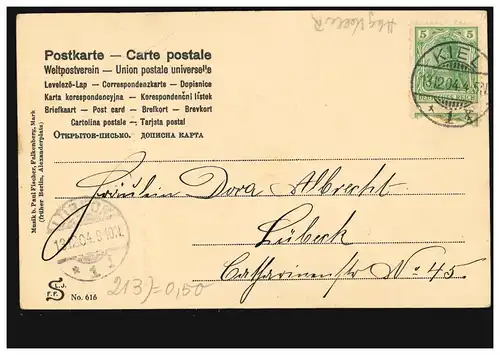 Postkarte — Carte postale
Weltpostverein — Union postale universelle
Levelező-Lap — Correspondenzkarte — Dopisnice
Karta korespondencyjna — Korespondenční lístek
Briefkaart — Post card — Brefkort — Brevkort
Cartolina postale — Tarjeta postal
Открытое-письмо. дописна карта
5 5
KIEL
13.12.04.4-5N.
* 1 k
Musik b. Paul Fischer, Falkenberg, Mark
(früher Berlin, Alexanderplatz)
Fräulein Dora Albrecht
Lübeck
Catharinenstr No 45.
13.12.04.9-10N.
* 1
213)=0,50
No. 616